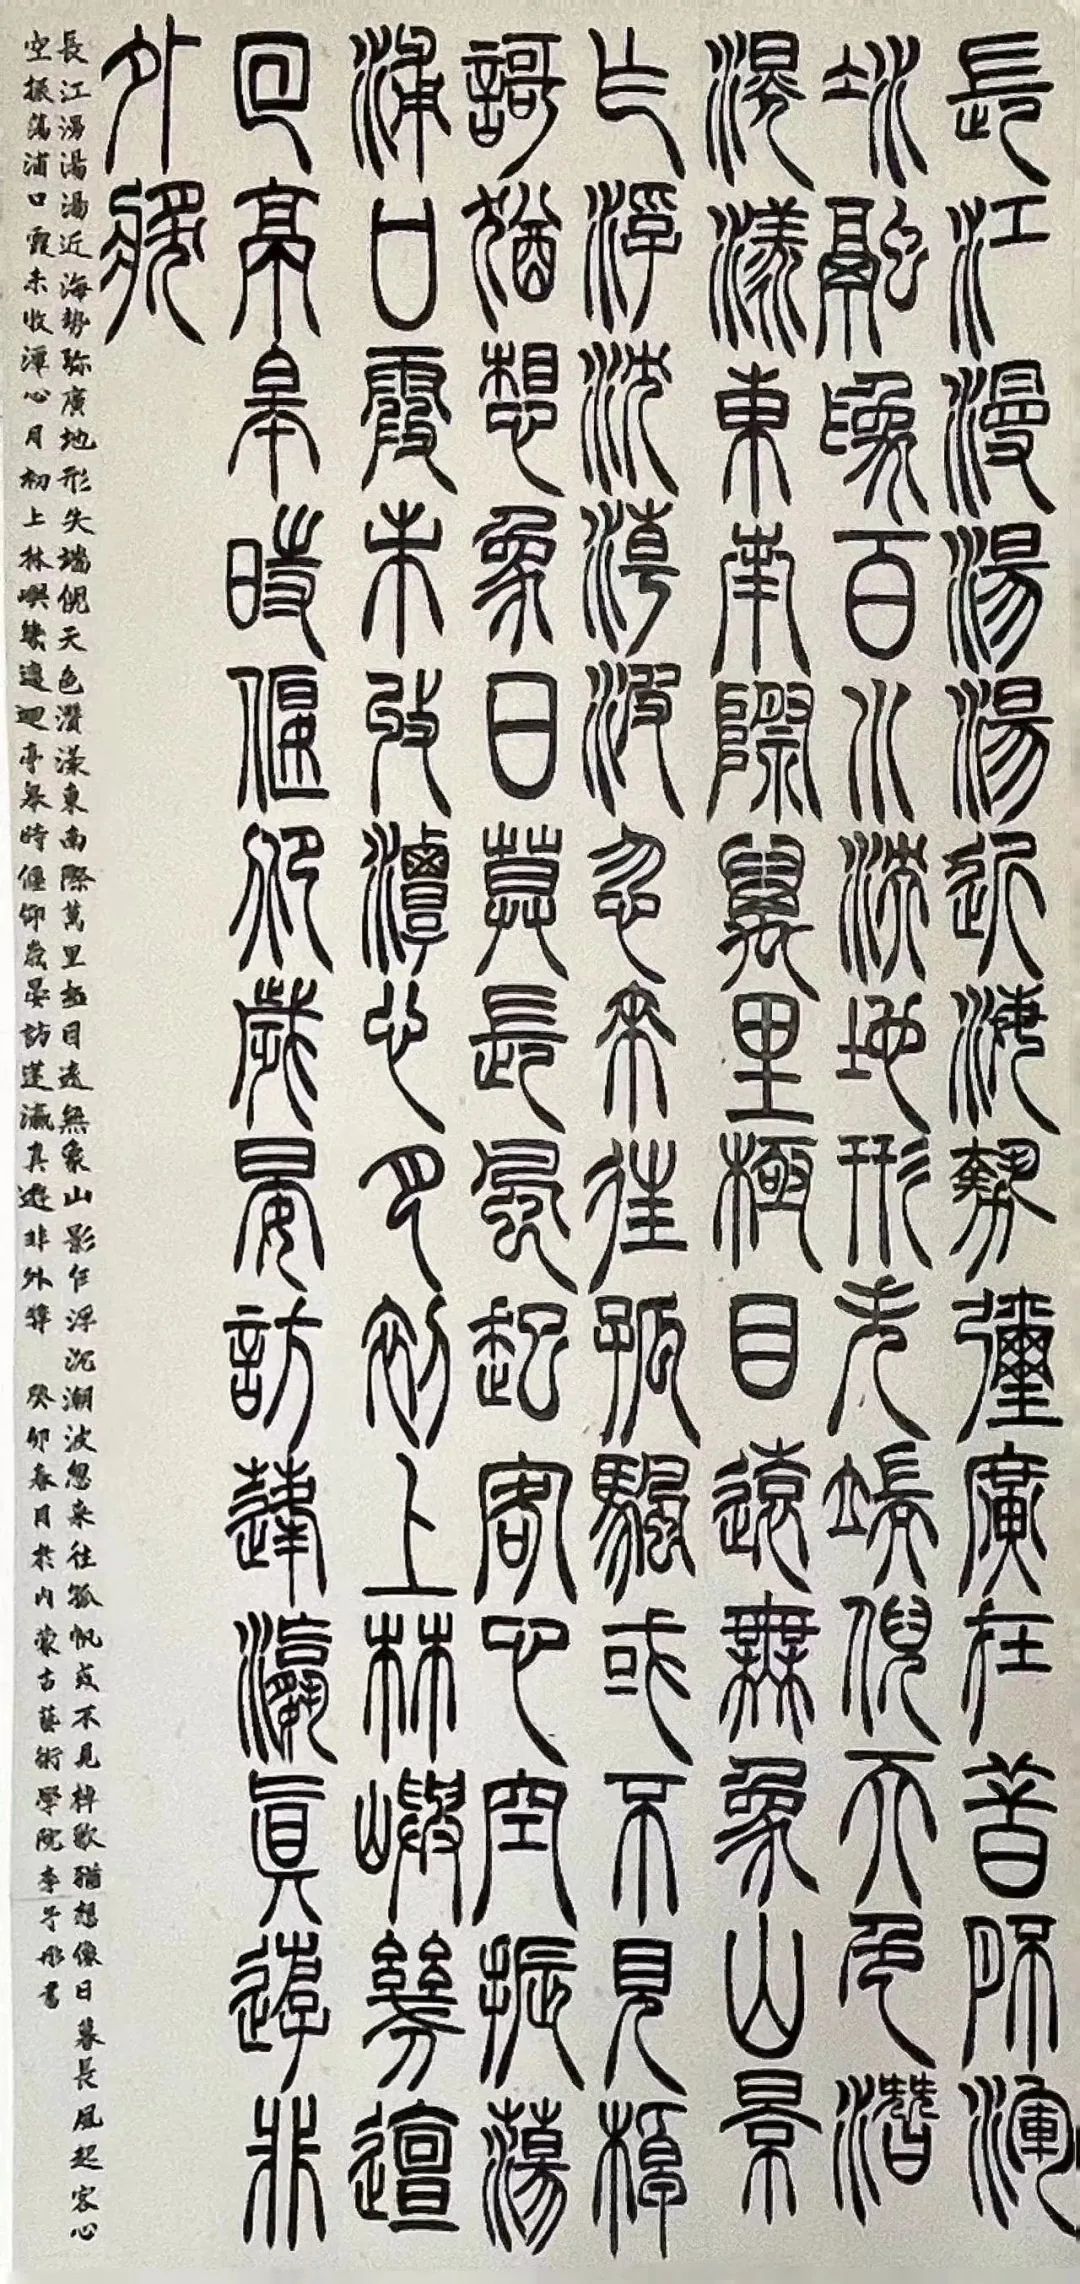 長江漫湯湯近海勢彌廣在昔胚渾
冰融為百川泱地形失端倪天色潛
滉漾東南際萬里極目遠無象山景
乍浮沈潮波忽來往孤颿或不見棹
謌猶想象日莫長風起客心空振蕩
浦口霞未收潭心月初上林嶼幾邅
回亭皋時偃仰歲晏訪蓬瀛真遊非
外獎
長江漫湯湯近海勢弥廣地形失端倪天色潛漾東南際萬里極目遠無象山影乍浮沉潮波忽来往孤帆或不見棹歌猶想像日暮長風起客心
空振蕩浦口霞未收潭心月初上林嶼幾邅迴亭皋時偃仰歲晏訪蓬瀛真遊非外獎 癸卯春月於内蒙古藝術學院李子彤書